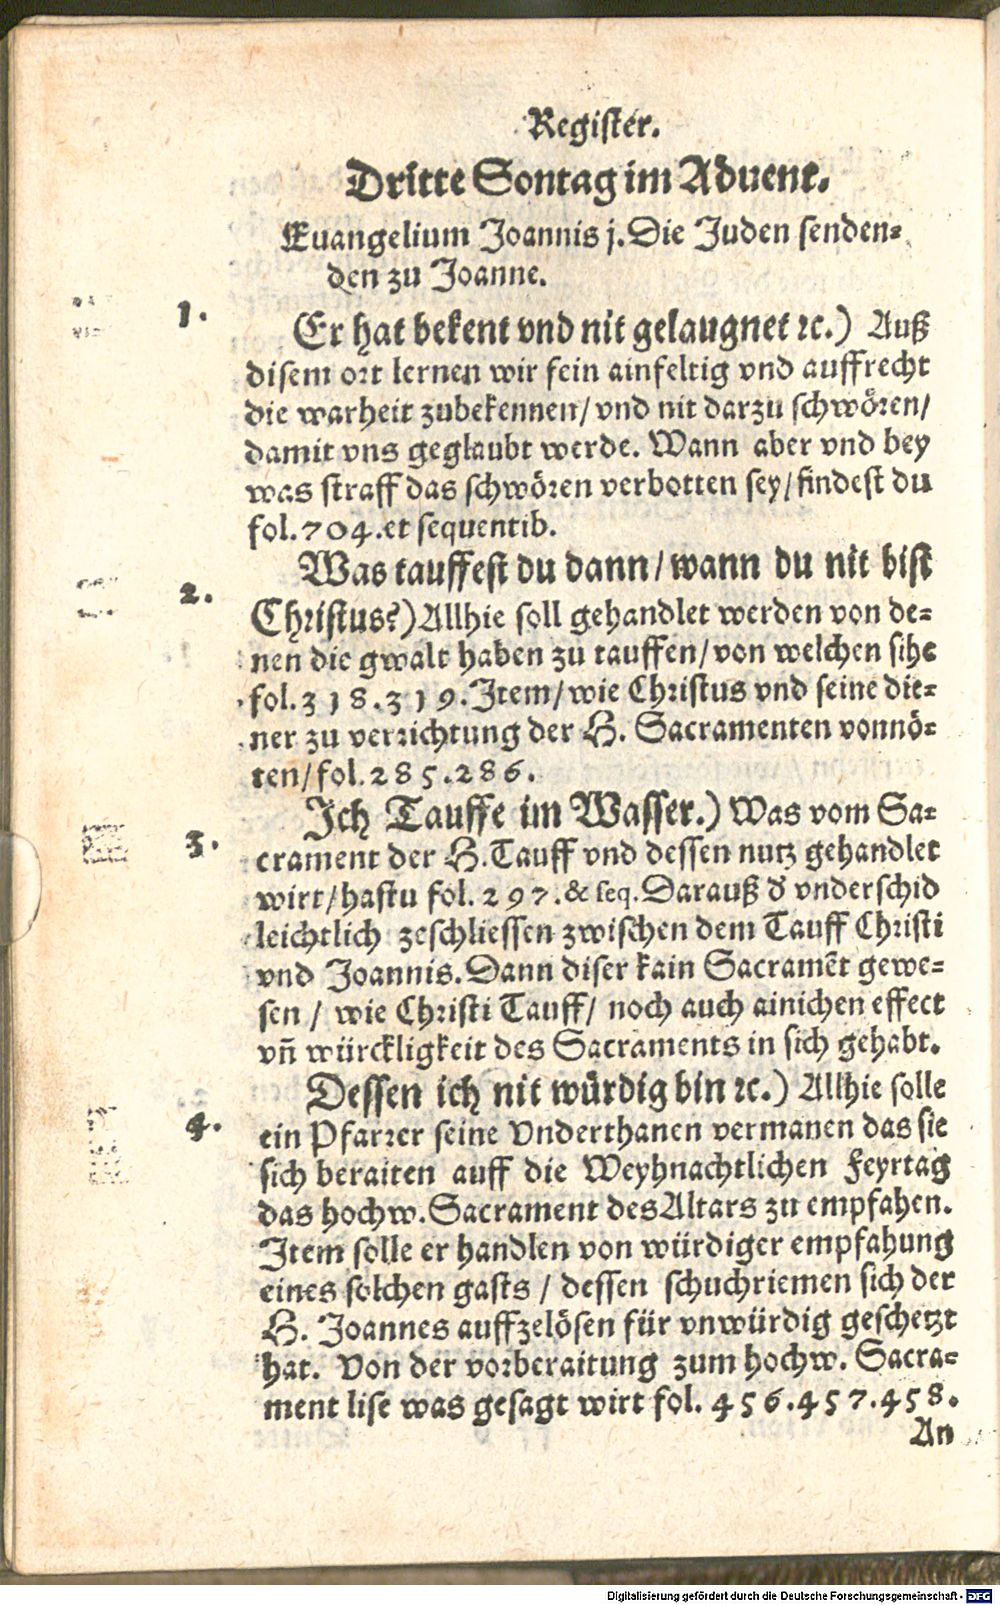 Register.
Dritte Sontag im Aduent.
Euangelium Joannis j. Die Juden senden-
den zu Joanne.
1. Er hat bekent vnd nit gelaugnet ꝛc.) Auß
disem ort lernen wir fein ainfeltig vnd auffrecht
die warheit zubekennen/ vnd nit darzu schwören/
damit vns geglaubt werde. Wann aber vnd bey
was straff das schwören verbotten sey/ findest du
fol. 704. et sequentib.
2. Was tauffest du dann/ wann du nit bist
Christus?) Allhie soll gehandlet werden von de-
nen die gwalt haben zu tauffen/ von welchen sihe
fol. 318. 319. Item/ wie Christus vnd seine die-
ner zu verrichtung der H. Sacramenten vonnö-
ten/ fol. 285. 286.
3. Ich Tauffe im Wasser.) Was vom Sa-
crament der H. Tauff vnd dessen nutz gehandlet
wirt/ hastu fol. 297. & seq. Darauß d̕ vnderschid
leichtlich zeschliessen zwischen dem Tauff Christi
vnd Joannis. Dann diser kain Sacramēt gewe-
sen / wie Christi Tauff/ noch auch ainichen effect
vñ würckligkeit des Sacraments in sich gehabt.
4. Dessen ich nit würdig bin ꝛc.) Allhie solle
ein Pfarrer seine Vnderthanen vermanen das sie
sich beraiten auff die Weyhnachtlichen Feyrtag
das hochw. Sacrament des Altars zu empfahen.
Item solle er handlen von würdiger empfahung
eines solchen gasts / dessen schuchriemen sich der
H. Joannes auffzelösen für vnwürdig geschetzt
hat. Von der vorberaitung zum hochw. Sacra-
ment lise was gesagt wirt fol. 456. 457. 458.
An
Digitalisierung gefördert durch die Deutsche Forschungsgemeinschaft - DFG